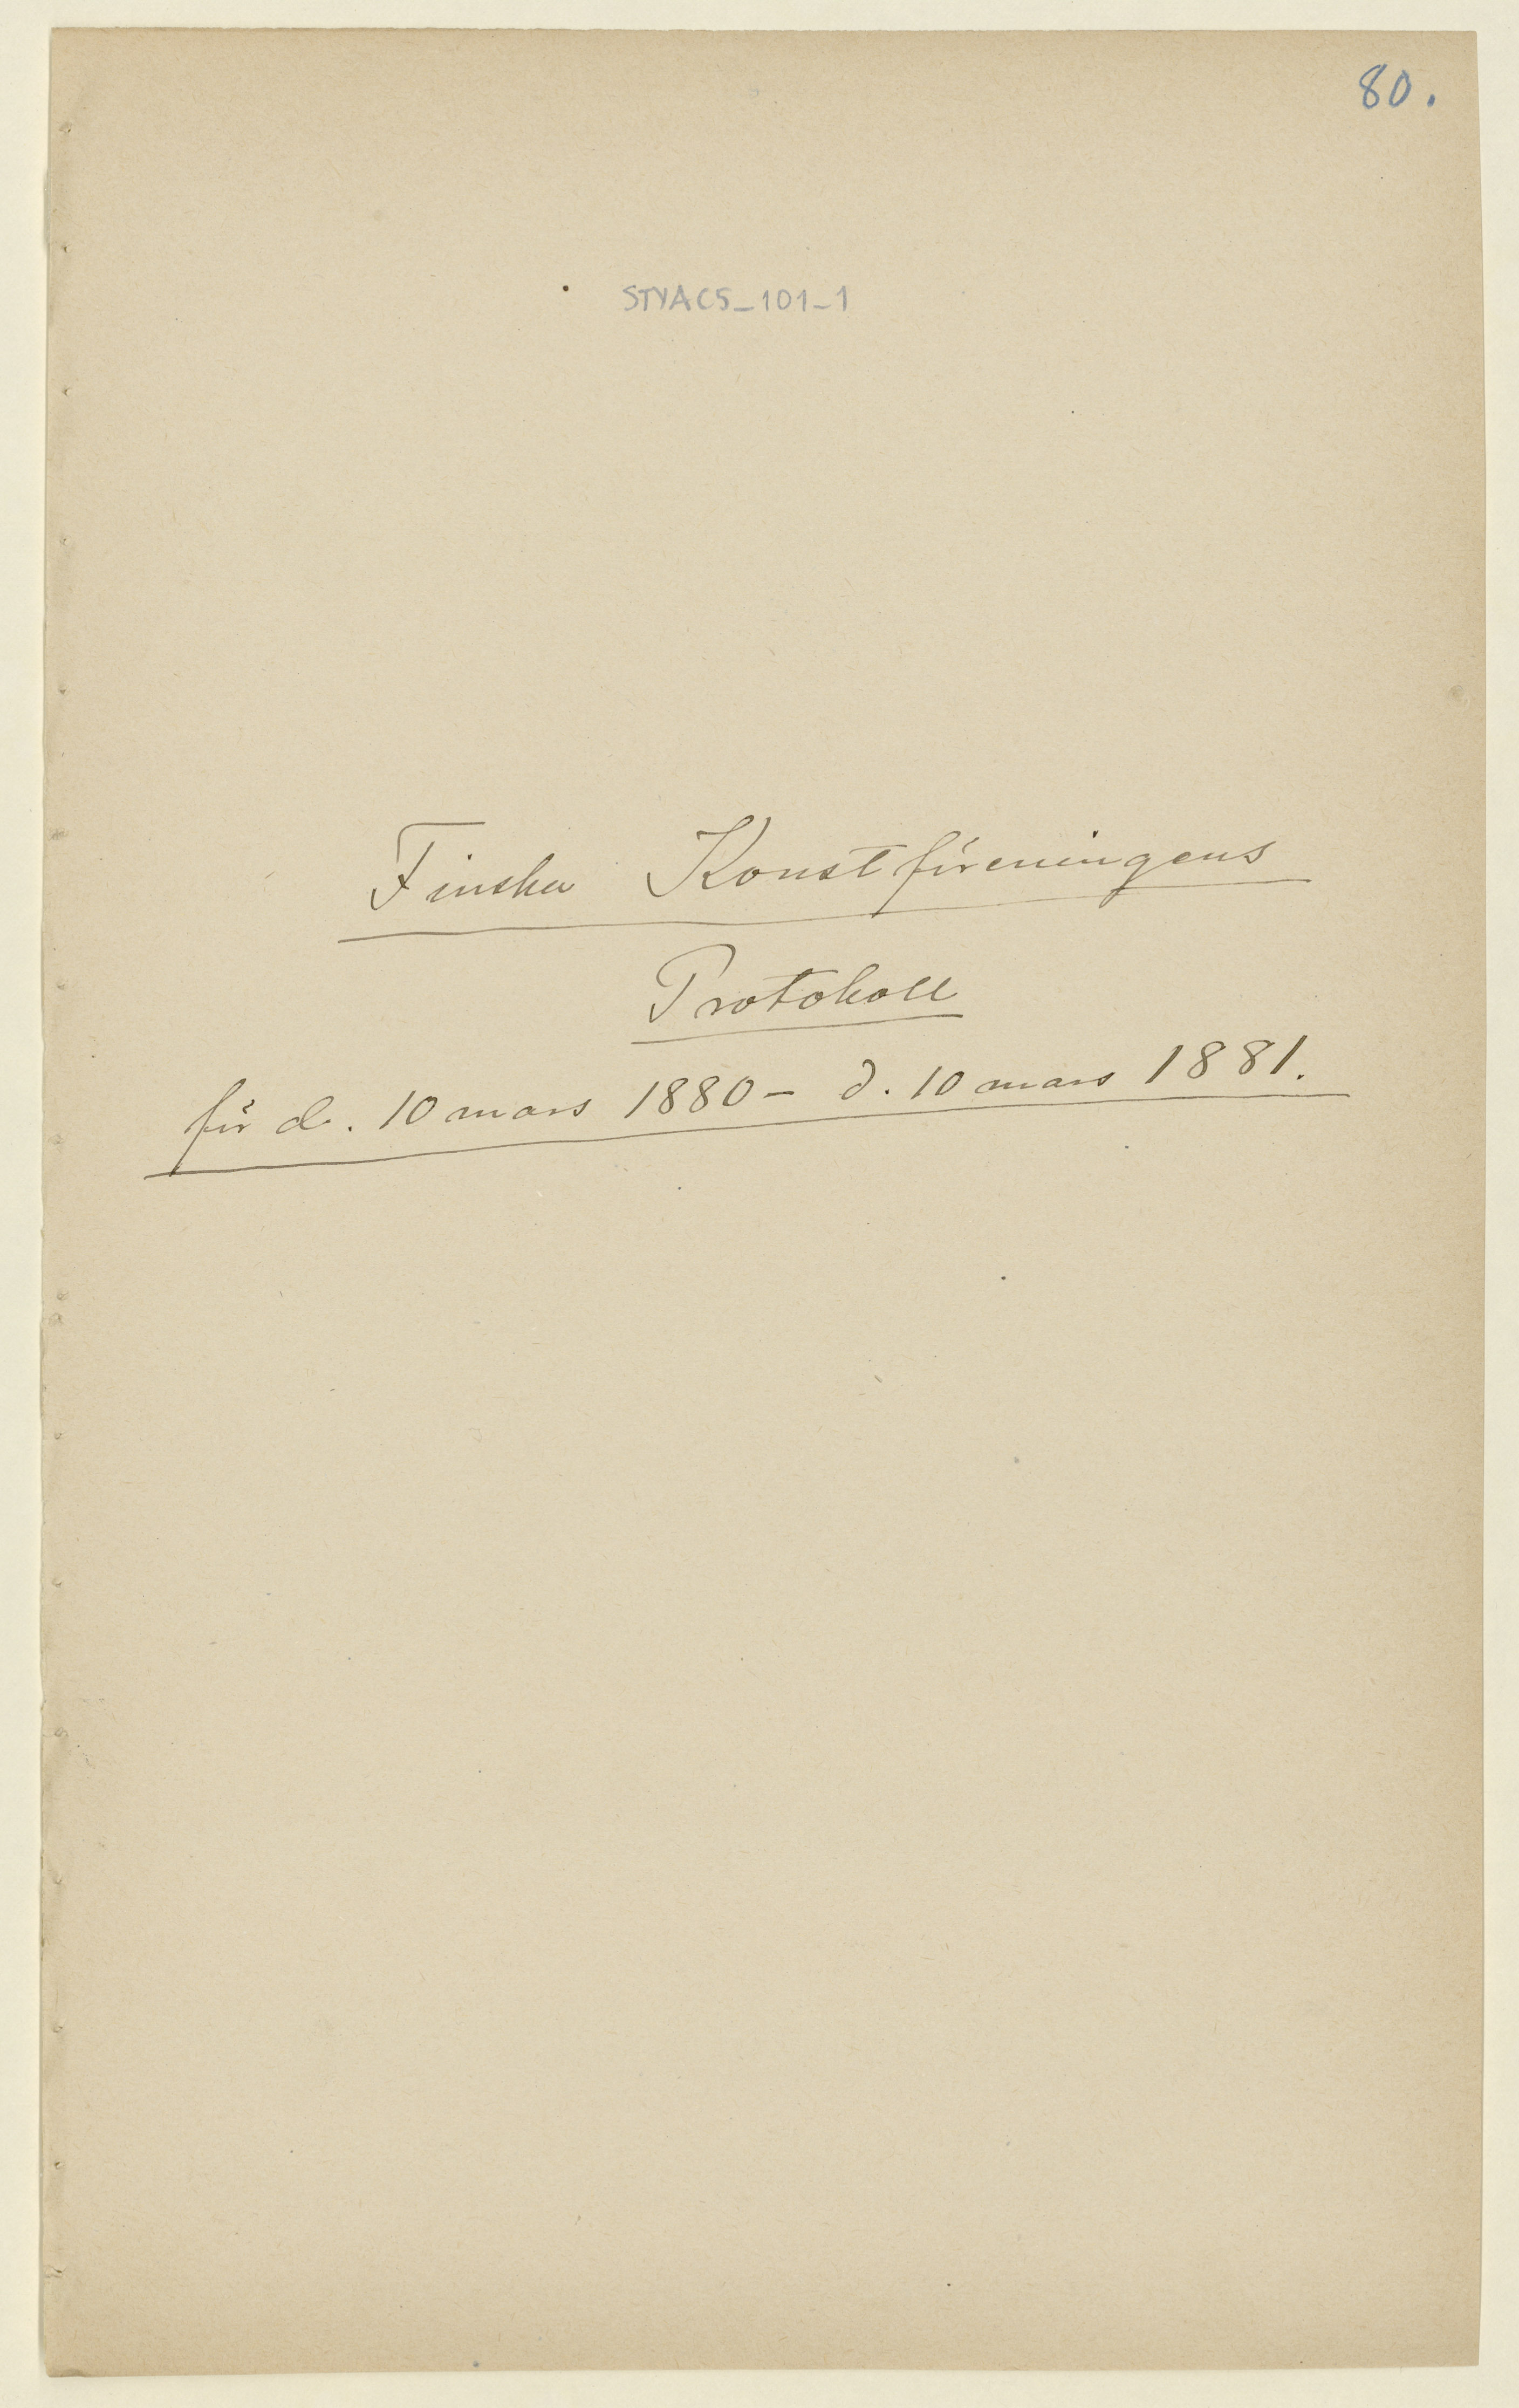 80.
STYAC5_101-1
Finska Konstföreningens
Protokoll
för d. 10 mars 1880 - d. 10 mars 1881.